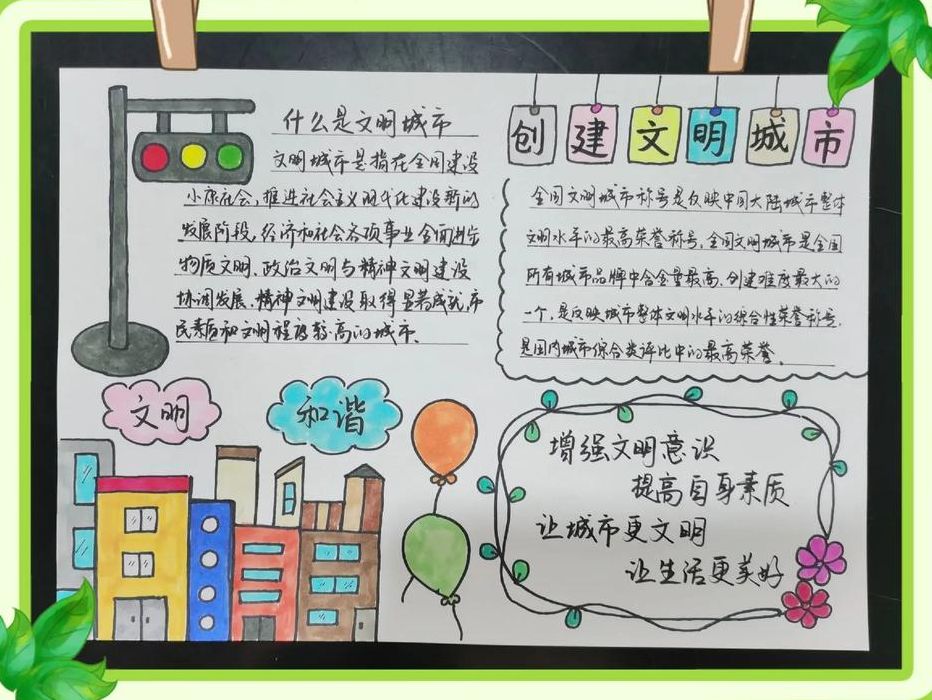 什么是文明城市
文明城市是指在全面建设
小康社会,推进社会主义现代化建设新的
发展阶段,经济和社会各项事业全面进步
物质文明、政治文明与精神文明建设
协调发展、精神文明建设取得显著成就,市
民素质和文明程度较高的城市.
创建文明城市
全国文明城市称号是反映中国大陆城市整体
文明水平的最高荣誉称号,全国文明城市是全国
所有城市品牌中含金量最高、创建难度最大的
一个,是反映城市整体文明水平的综合性荣誉称号,
是国内城市综合类评比中的最高荣誉.
文明
和谐
增强文明意识
提高自身素质
让城市更文明
让生活更美好